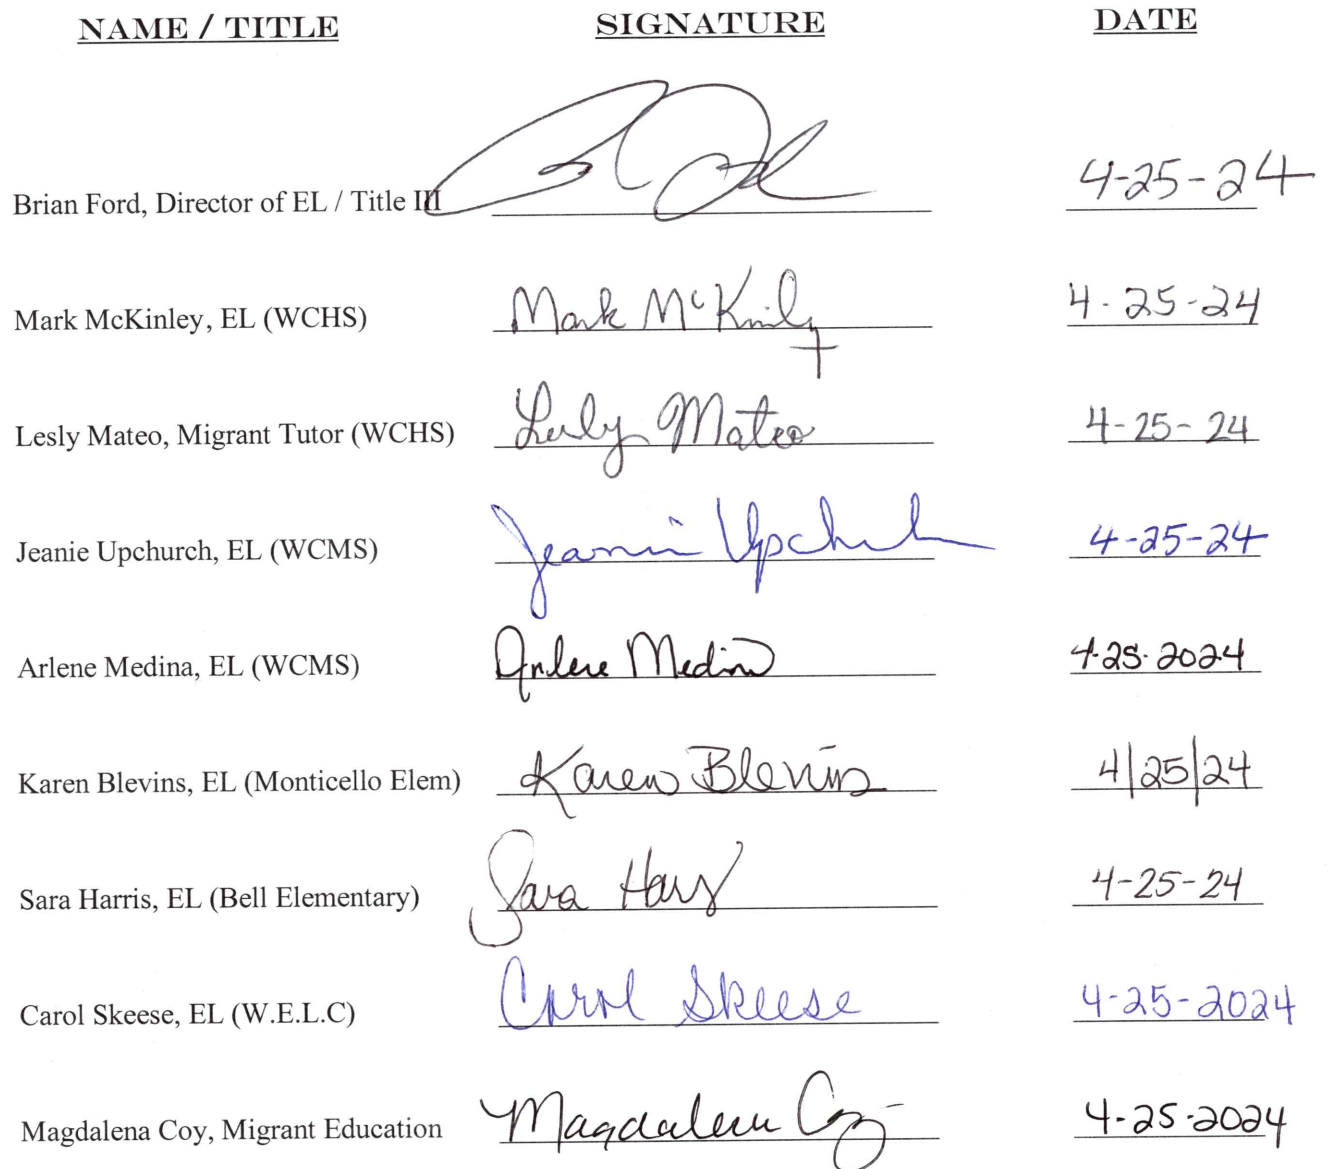 NAME / TITLE SIGNATURE DATE
Brian Ford, Director of EL / Title III 4-25-24
Mark McKinley, EL (WCHS) Mark McKinley 4-25-24
Lesly Mateo, Migrant Tutor (WCHS) Lesly Mateo 4-25-24
Jeanie Upchurch, EL (WCMS) Jeanie Upchurch 4-25-24
Arlene Medina, EL (WCMS) Arlene Medina 4-25-2024
Karen Blevins, EL (Monticello Elem) Karen Blevins 4|25|24
Sara Harris, EL (Bell Elementary) Sara Harris 4-25-24
Carol Skeese, EL (W.E.L.C) Carol Skeese 4-25-2024
Magdalena Coy, Migrant Education Magdalena Coy 4-25-2024